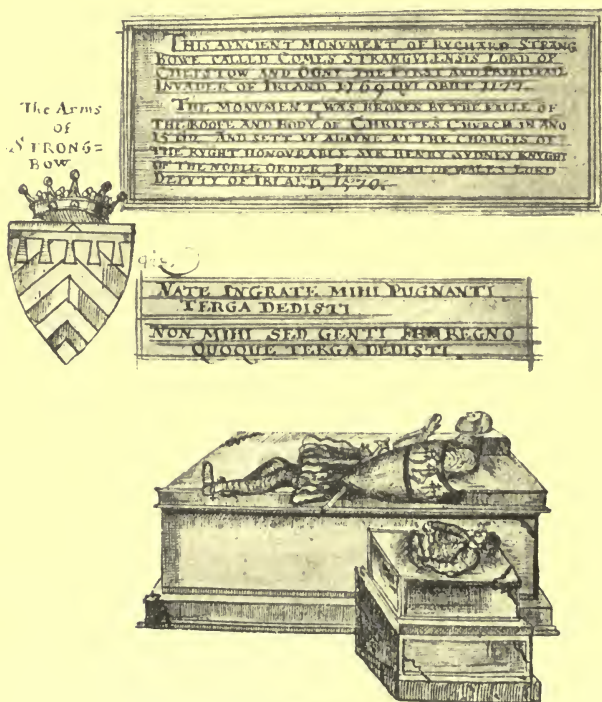 THIS AVNCIENT MONVMENT OF RYCHARD STRANG
BOWE CALLED COMES STRANGVLENSIS LORD OF
CHEPSTOW AND OGNY THE FYRST AND PRINCIPALL
INVADER OF IRLAND 1169 QVI OBIIT 1177.
THE MONVMENT WAS BROKEN BY THE FALLE OF
THE ROOFE AND BODY OF CHRISTES CHVRCH IN ANO
AND SETT VP AGAYNE AT THE CHARGYS OF
THE RYGHT HONOVRABLE SIR HENRY SYDNEY KNYGHT
OF THE NOBLE ORDER, PRESYDENT OF WALES LORD
DEPUTY OF IRLAND, 1570.
The Arms
of
STRONG=
BOW
NATE INGRATE MIHI PUGNANTI
TERGA DEDISTI
NON MIHI SED GENTI REGNO
QUOQUE TERGA DEDISTI